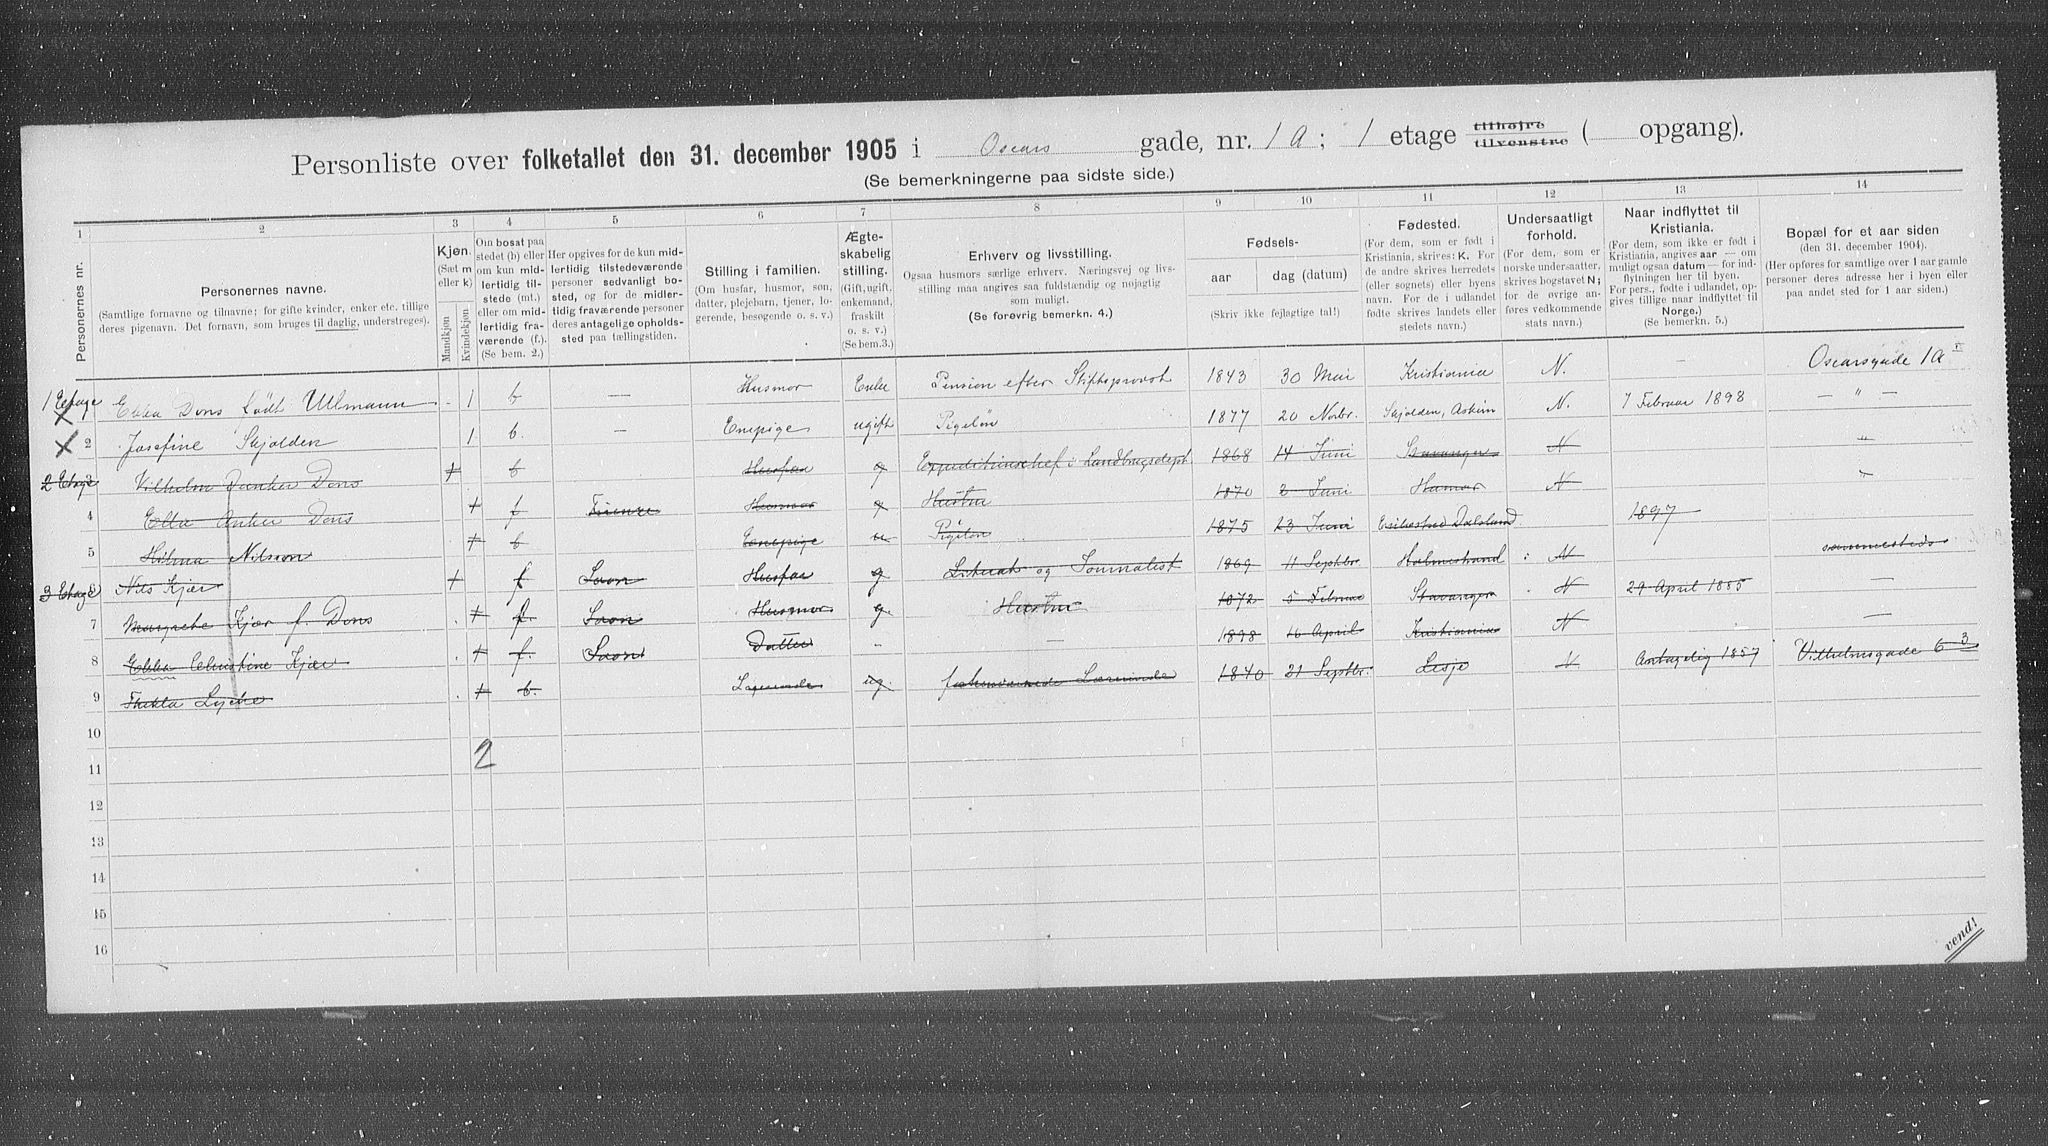 Personliste over folketallet den 31. december 1905 i Oscars gade, nr. 1 A; 1 etage tilhøjre tilvenstre ( opgang).
(Se bemerkningerne paa sidste side.)
1 2 3 4 5 6 7 8 9 10 11 12 13 14
Personernes nr.
Personernes navne.
(Samtlige fornavne og tilnavne; for gifte kvinder, enker etc. tillige
deres pigenavn. Det fornavn, som bruges til daglig, understreges).
Kjøn.
(Sæt m
eller k)
Mandkjøn
Kvindekjøn
Om bosat paa
stedet (b) eller
om kun midlertidig
tilstede (mt.)
eller om midlertidig
fraværende (f.).
(Se bem. 2.)
Her opgives for de kun midlertidig
tilstedeværende
personer sedvanligt bosted,
og for de midlertidig
fraværende personer
deres antagelige opholdssted
paa tællingstiden.
Stilling i familien.
(Om husfar, husmor, søn,
datter, plejebarn, tjener, logerende,
besøgende o. s. v.)
Ægteskabelig
stilling.
(Gift, ugift,
enkemand,
fraskilt
o. s. v.)
(Se bem.3.)
Erhverv og livsstilling.
Ogsaa husmors særlige erhverv. Næringsvej og livsstilling
maa angives saa fuldstændig og nøjagtig
som muligt.
(Se forøvrig bemerkn. 4.)
Fødsels-
aar dag (datum)
(Skriv ikke fejlagtige tal!)
Fødested.
(For dem, som er født i
Kristiania, skrives: K. For
de andre skrives herredets
(eller sognets) eller byens
navn. For de i udlandet
fødte skrives landets eller
stedets navn.)
Undersaatligt
forhold.
(For dem, som er
norske undersaatter,
skrives bogstavet N;
for de øvrige anføres
vedkommende
stats navn.)
Naar indflyttet til
Kristiania.
(For dem, som ikke er født i
Kristiania, angives aar — om
muligt ogsaa datum — for indflytningen
her til byen.
For pers., fødte i udlandet, opgives
tillige naar indflyttet til
Norge.)
(Se bemerkn. 5.)
Bopæl for et aar siden
(den 31. december 1904).
(Her opføres for samtlige over 1 aar gamle
personer deres adresse her i byen eller
paa andet sted for 1 aar siden.)
1 Etage X Ebba Dons født Ullmann 1 b — Husmor Enke Pension efter Stiftsprovst 1843 30 Mai Kristiania N. — Oscarsgade 1A
X 2 Josefine Skjolden 1 b. — Enepige ugift Pigeløn 1877 20 Novbr. Skjolden, Askim N. 7 Februar 1898 — " —
2 Etage Vilhelm Dons + b Husfar g Expeditionschef i Landbrugsdept. 1868 14 Juni Stavanger N "
4 Ella Anker Dons + f Firenze Husmor g Hustru 1870 2 Juni Hamar N "
5 Hilma Nilsson + b Enepige u Pigeløn 1875 23 Juni Dalsland 1897
3 Etage Nils Kjær + f Husfar g Literat og Journalist 1869 11 Septbr. Holmestrand N sammesteds
7 Margrethe Kjær f. Dons + f. Husmor g. Hustru 1872 5 Februar Stavanger N 29 April 1885 —
8 Ebba Christine Kjær + f. Datter - — 1898 16 April Kristiania N —
9 Thekla + b. Logerende ug. Lærerinde 1840 21 Septbr. Lesje N Antagelig 1857 Vilhelmsgade 6 3
10
2
11
12
13
14
15
16
vend!